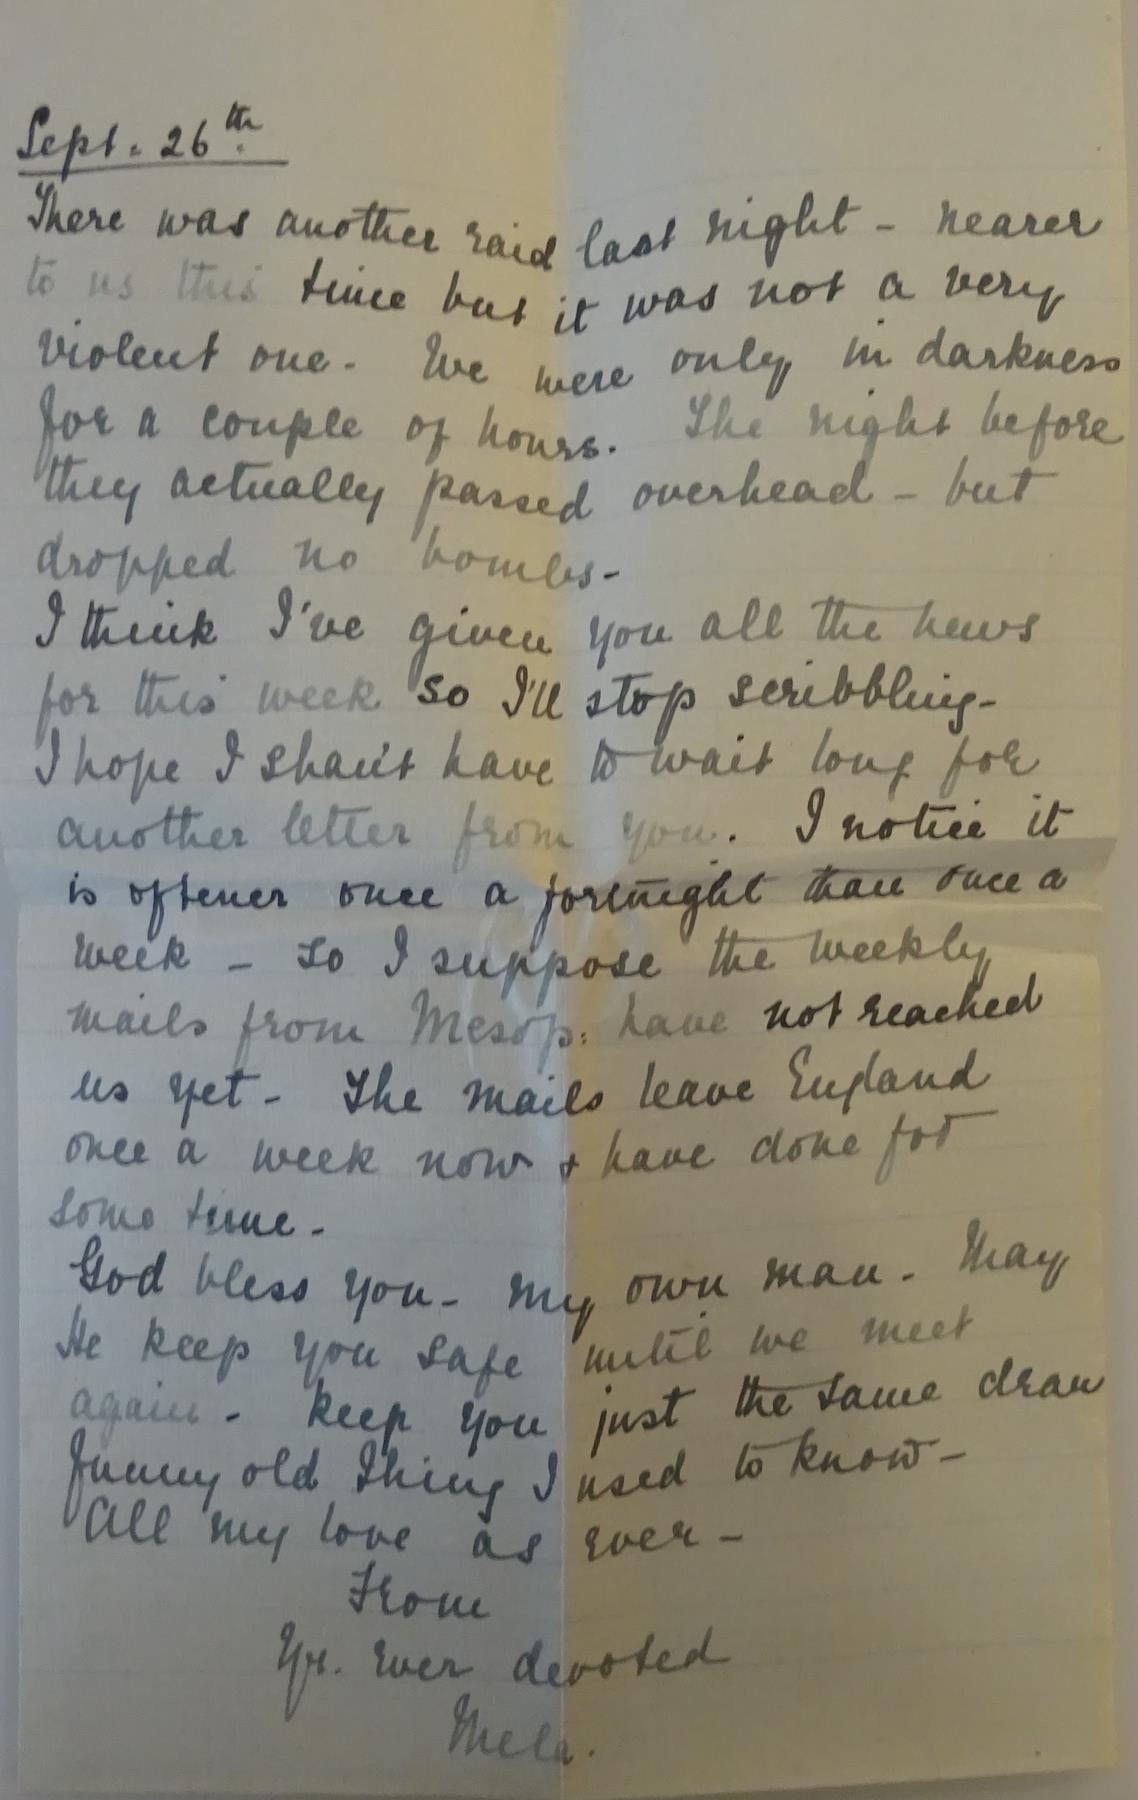 Sept. 26th
There was another raid last night - nearer
to us this time but it was not a very
violent one. We were only in darkness
for a couple of hours. The night before
they actually passed overhead - but
dropped no bombs -
I think I've given you all the news
for this week so I'll stop scribbling -
I hope I shan't have to wait long for
another letter from you. I notice it
is oftener once a fortnight than once a
week - so I suppose the weekly
mails from Mesop: have not reached
us yet - The mails leave England
once a week now & have done for
some time -
God bless you - my own man - May
He keep you safe until we meet
again - keep you just the same dear
funny old thing I used to know -
All my love as ever -
From
Yr. ever devoted
Mela.